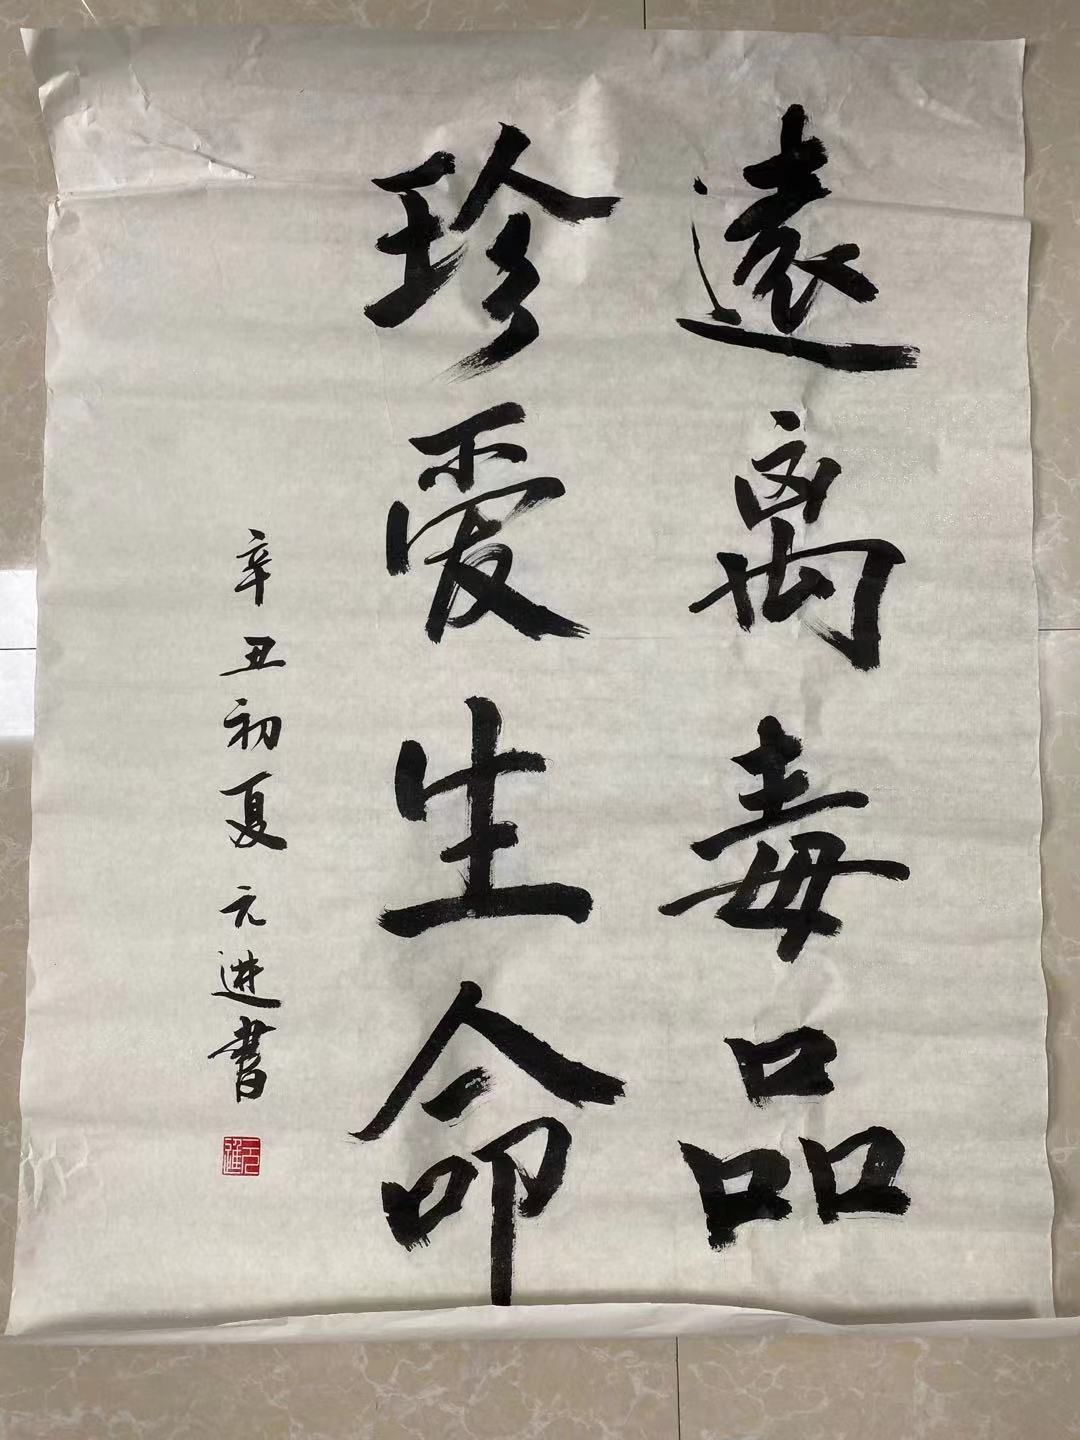 遠离毒品
珍爱生命
辛丑初夏 元进書
元進